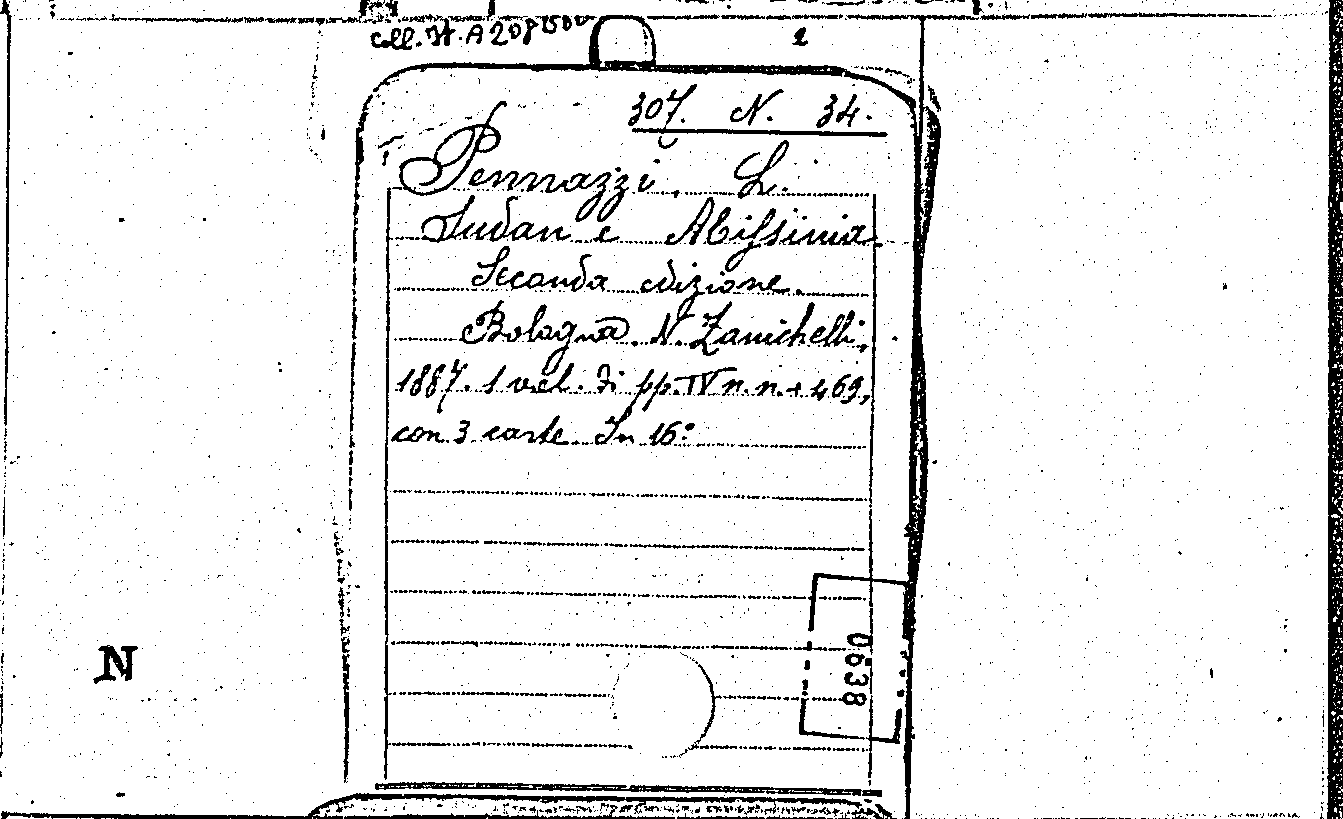 coll. It. A 208
2
307. N. 34.
Pennazzi. L.
Sudan e Abissinia.
Seconda edizione.
Bologna. N. Zanichelli,
1887. 1 vol. di pp. IV n. n. + 469,
con 3 carte. In 16°
0638
N